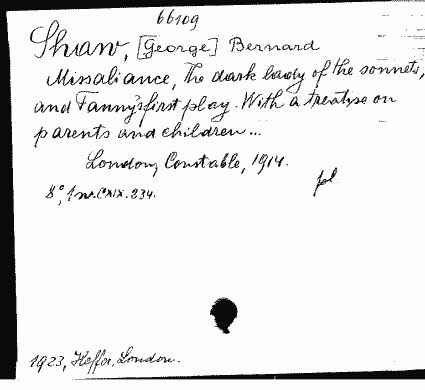 66109
Shaw, [George] Bernard
Missaliance, The dark lady of the sonnets,
and Fanny's first play. With a treatise on
parents and children...
London, Constable, 1914.
pl.
8°, 1 nv. CXIX. 234.
1923, Heffer, London.